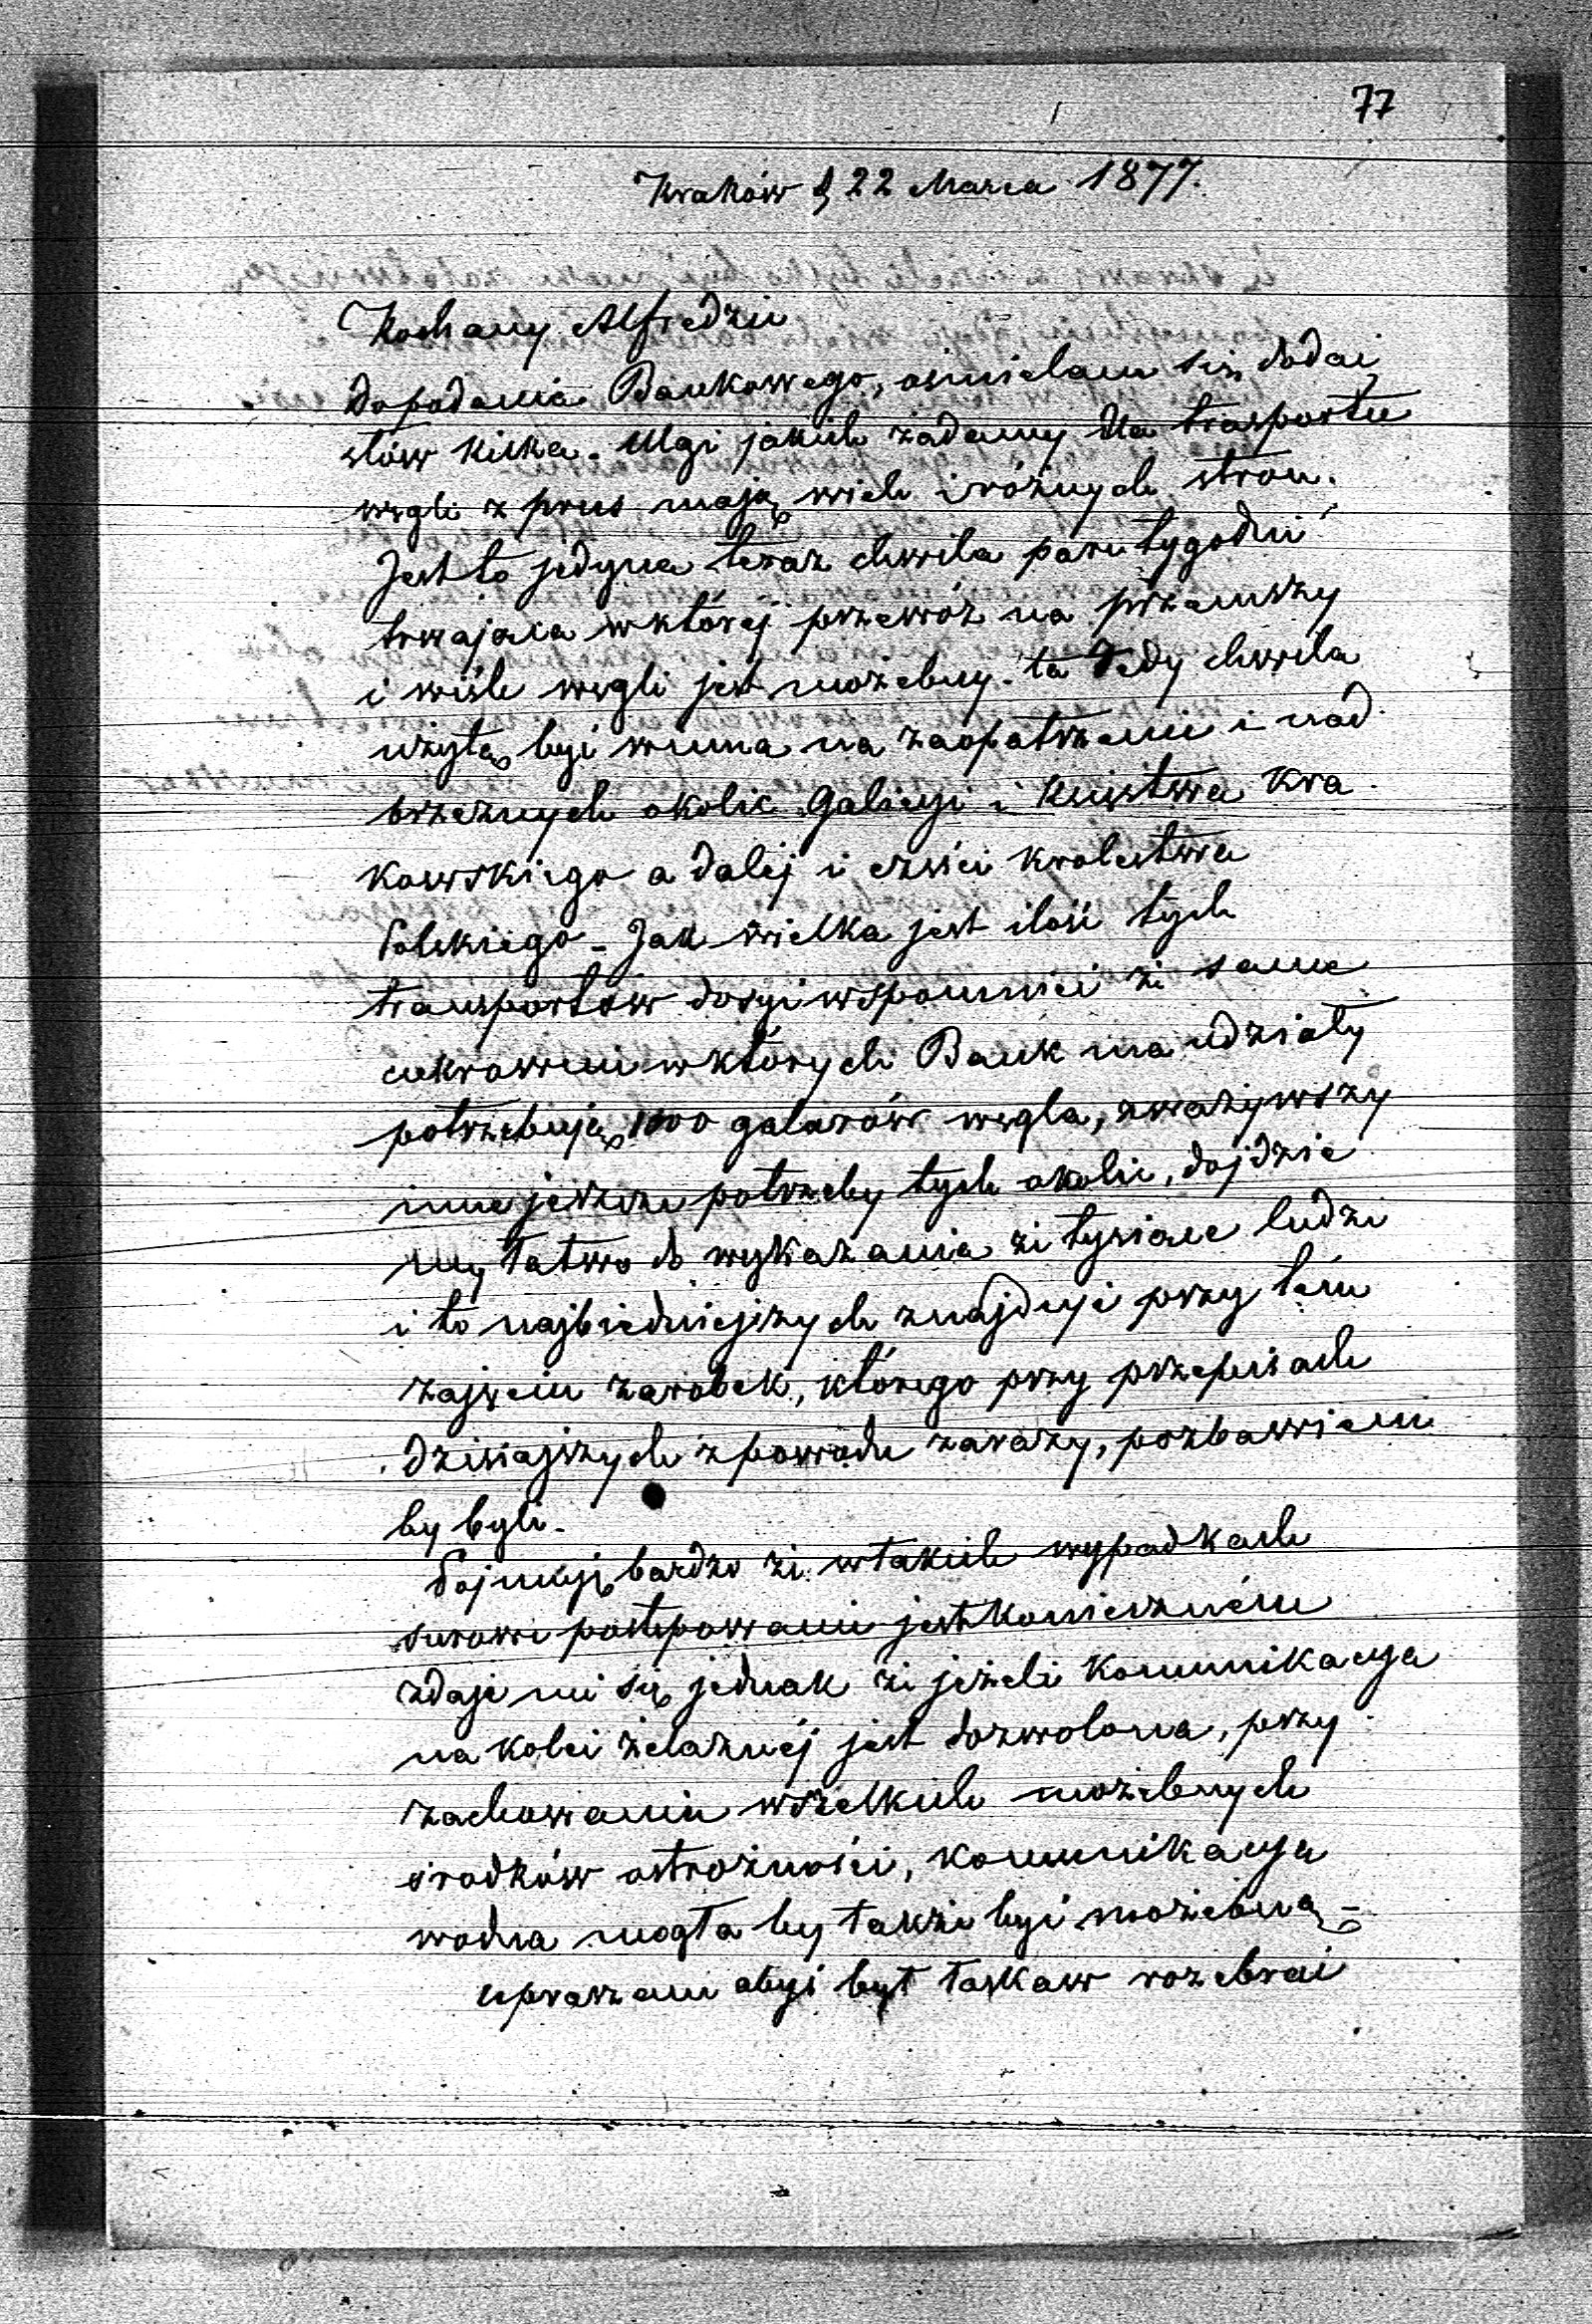 77
Kraków d 22 Marca 1877.
Kochany Alfredziu
Do podania Bankowego, ośmielam się dodać
słów kilka. Ulgi jakich żądamy dla trasportu
węgli z prus mają wiele i różnych stron.
Jest to jedyna teraz chwila paru tygodni
trwająca w której przewóz na przemszy
i wiśle węgli jest możebny. ta tedy chwila
użytą być winna na zaopatrzenie i nad
brzeżnych okolic Galicyi i Księstwa Kra
kowskiego a dalėj i części krolestwa
Polskiego – Jak wielka jest ilość tych
transportów dosyć wspomnieć że same
cukrownie w których Bank ma udziały
potrzebują 1000 galarów węgla, zważywszy
inne jeszcze potrzeby tych okolic, dojdzie
my łatwo do wykazania że tysiące ludzi
i to najbiedniejszych znajduje przy tém
zajęciu zarobek, którego przy przepisach
dzisiajszych z powodu zarazy, pozbawieni
by byli.
Pojmuję bardzo że w takich wypadkach
surowe postępowanie jest konieczném
zdaje mi się jednak że jeżeli komunikacya
na kolei żelaznéj jest dozwolona, przy
zachowaniu wszelkich możebnych
środków ostrożności, komunikacya
wodna mogła by także być możebną –
upraszam abyś był łaskaw rozebrać